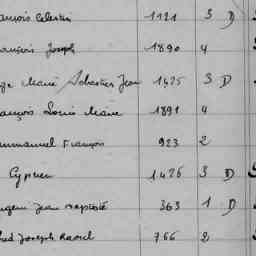 ançois Celestin 1121 3 D
ançois Joseph 1890 4
Marie Sebastien Jean 1425 3 D
ançois Louis Marie 1891 4
mmanuel François 923 2
Cyprien 1426 3 D
Jean Baptiste 363 1 D
red Joseph Raoul 766 2